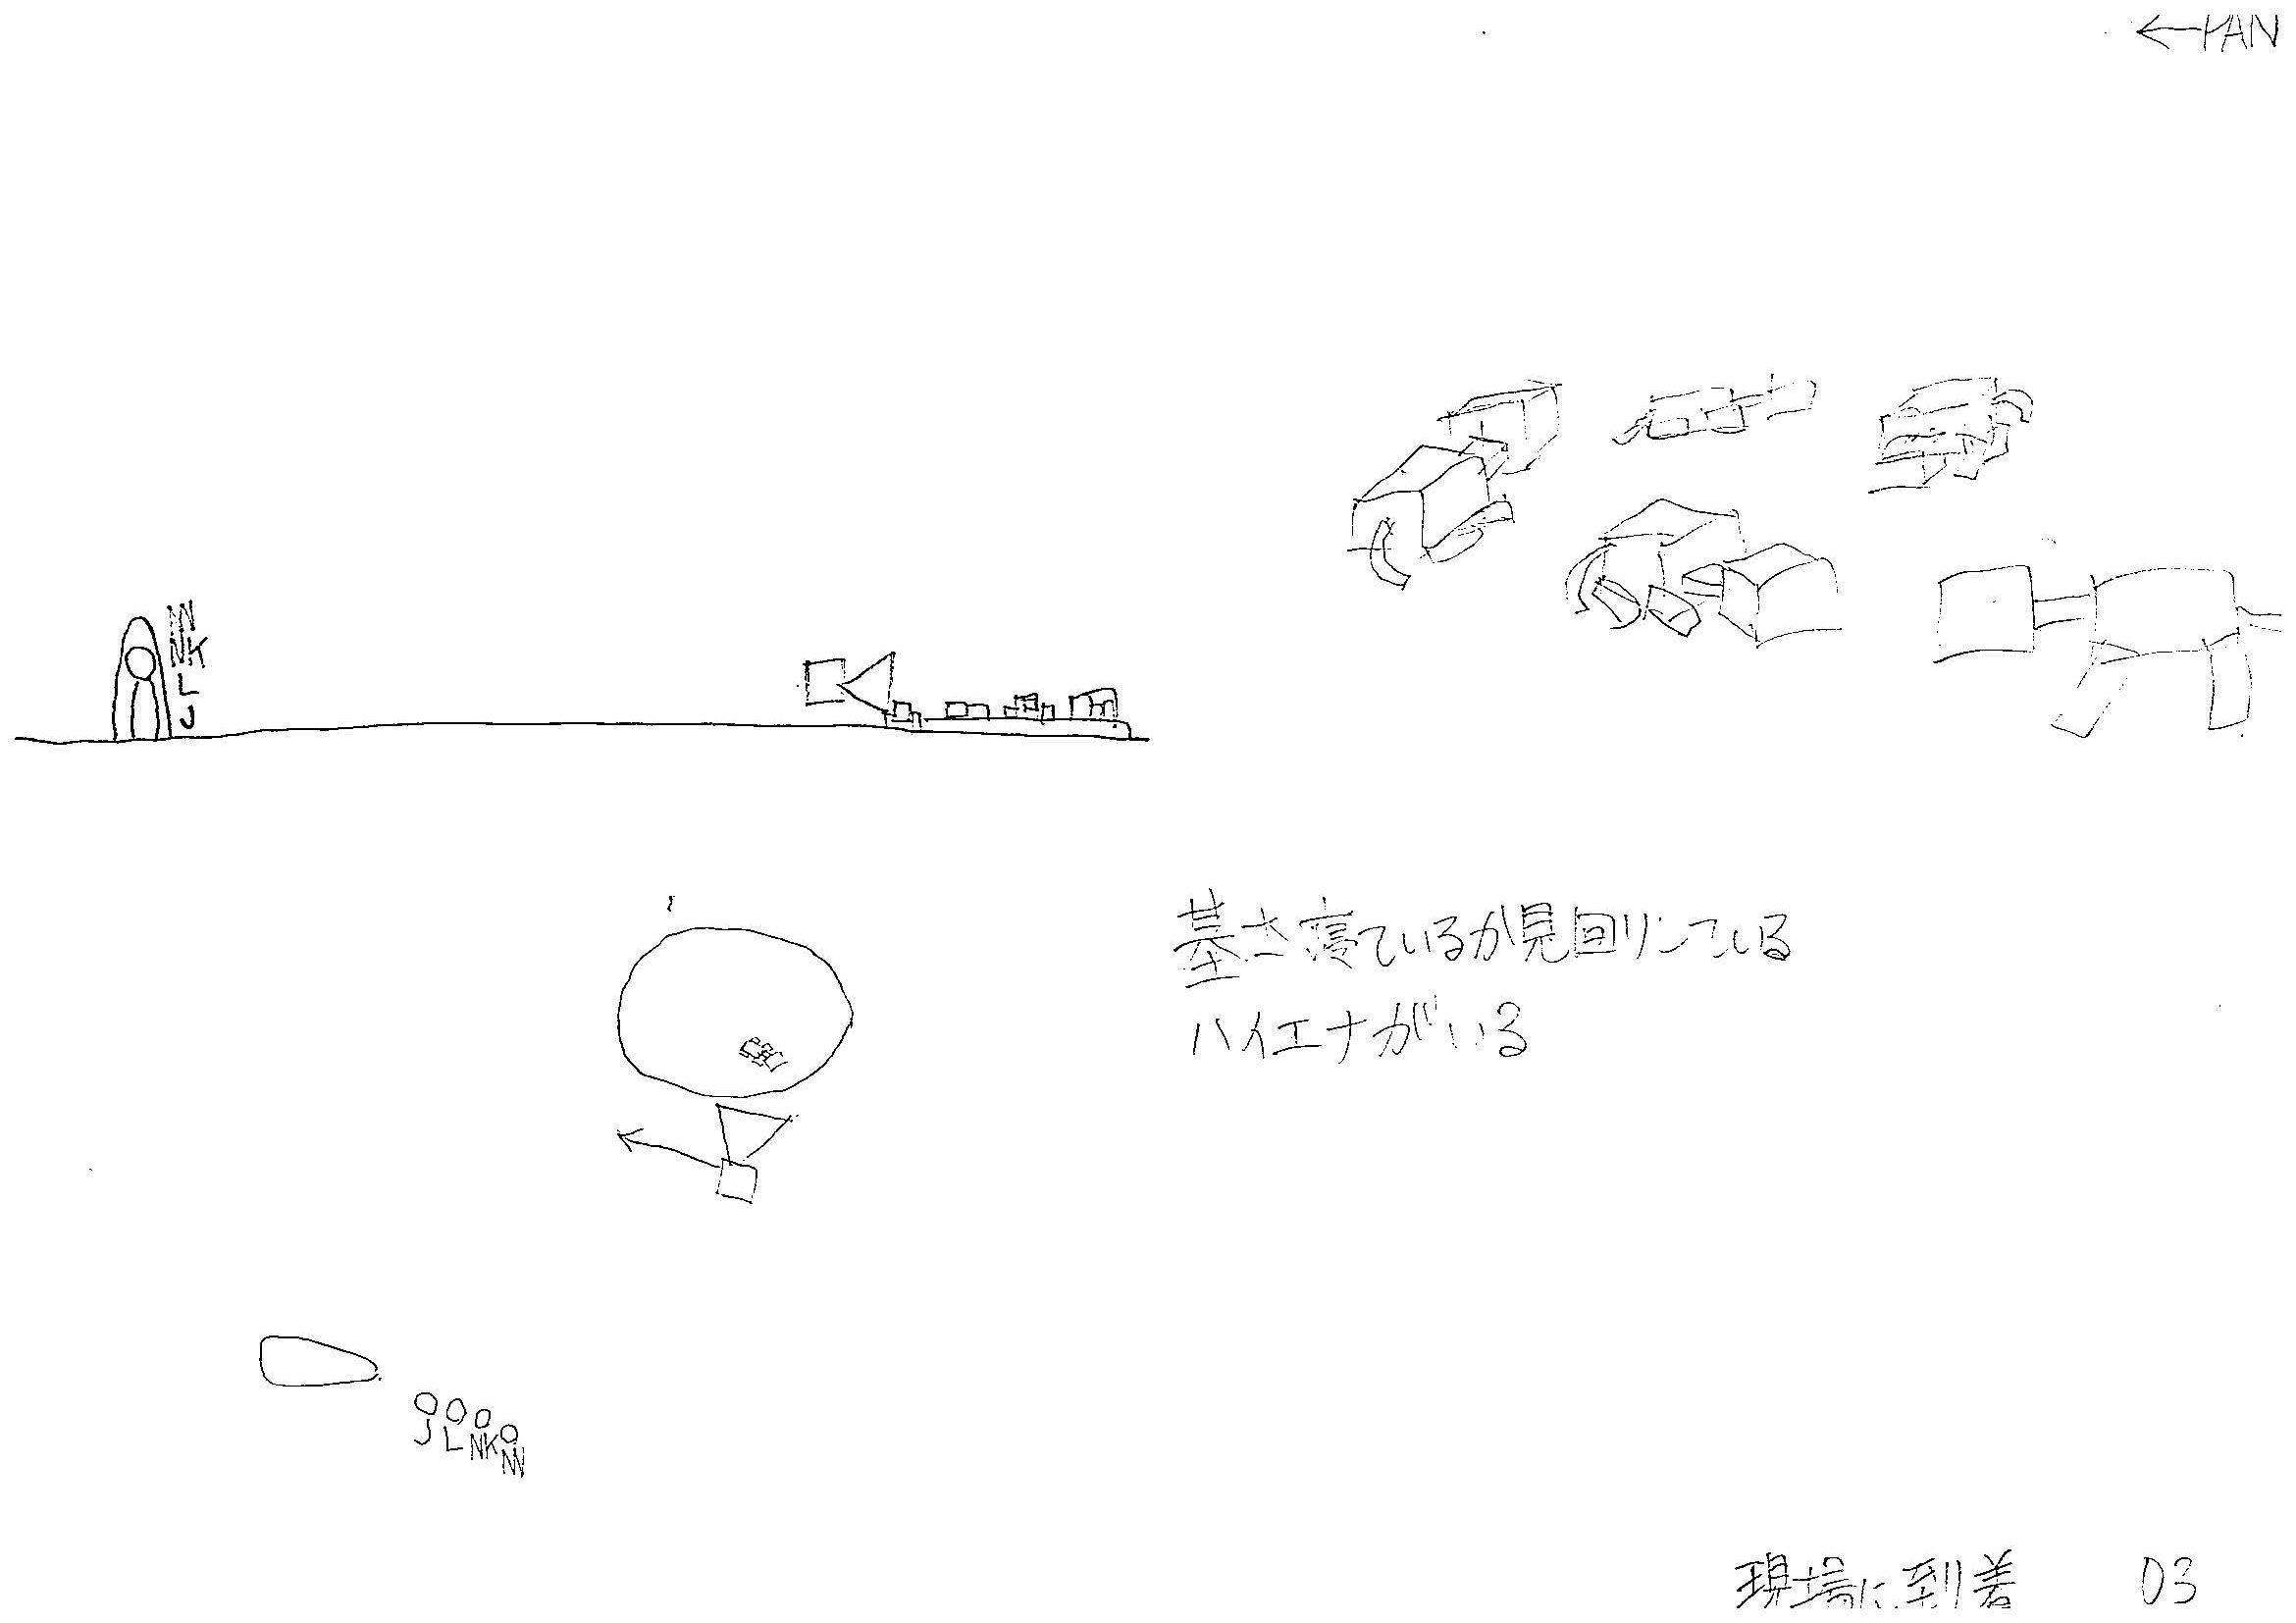 ←PAN
NN
NK
L
J
基本寝ているが見回りしている
ハイエナがいる
J L NK NN
現場に到着 03